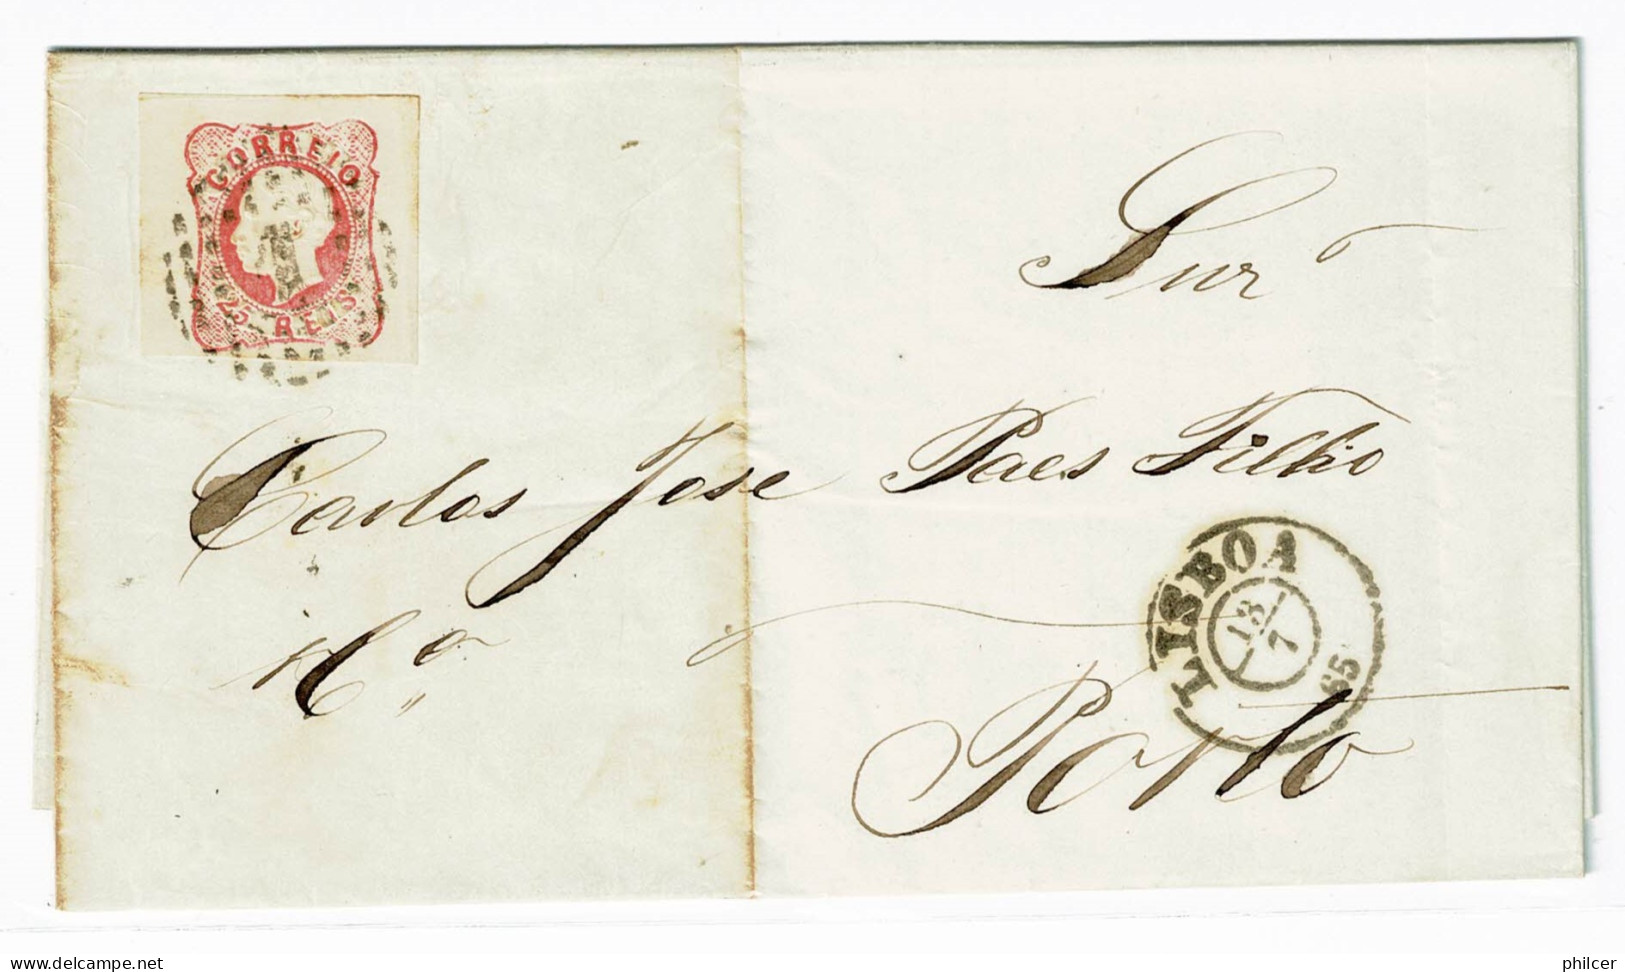 CORREIO
25 REIS
Snr
Carlos Jose Paes Filho
LISBOA
13/7
65
Porto
www.delcampe.net
philcer